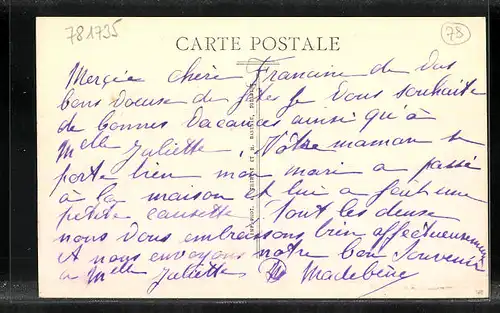 781735
78
CARTE POSTALE
Merçie chère Francine de Vos
bons voeuse de fêtes Je Vous souhaite
de bonnes Vacances ainsi qu'à
Melle Juliette. Vôtre maman se
porte bien mon mari a passé
à la maison et lui a fait une
petite causette Tout les deuse
nous Vous embrassons bien affectueusement
et nous envoyons notre bon Souvenir
a Melle Juliette Madeleine